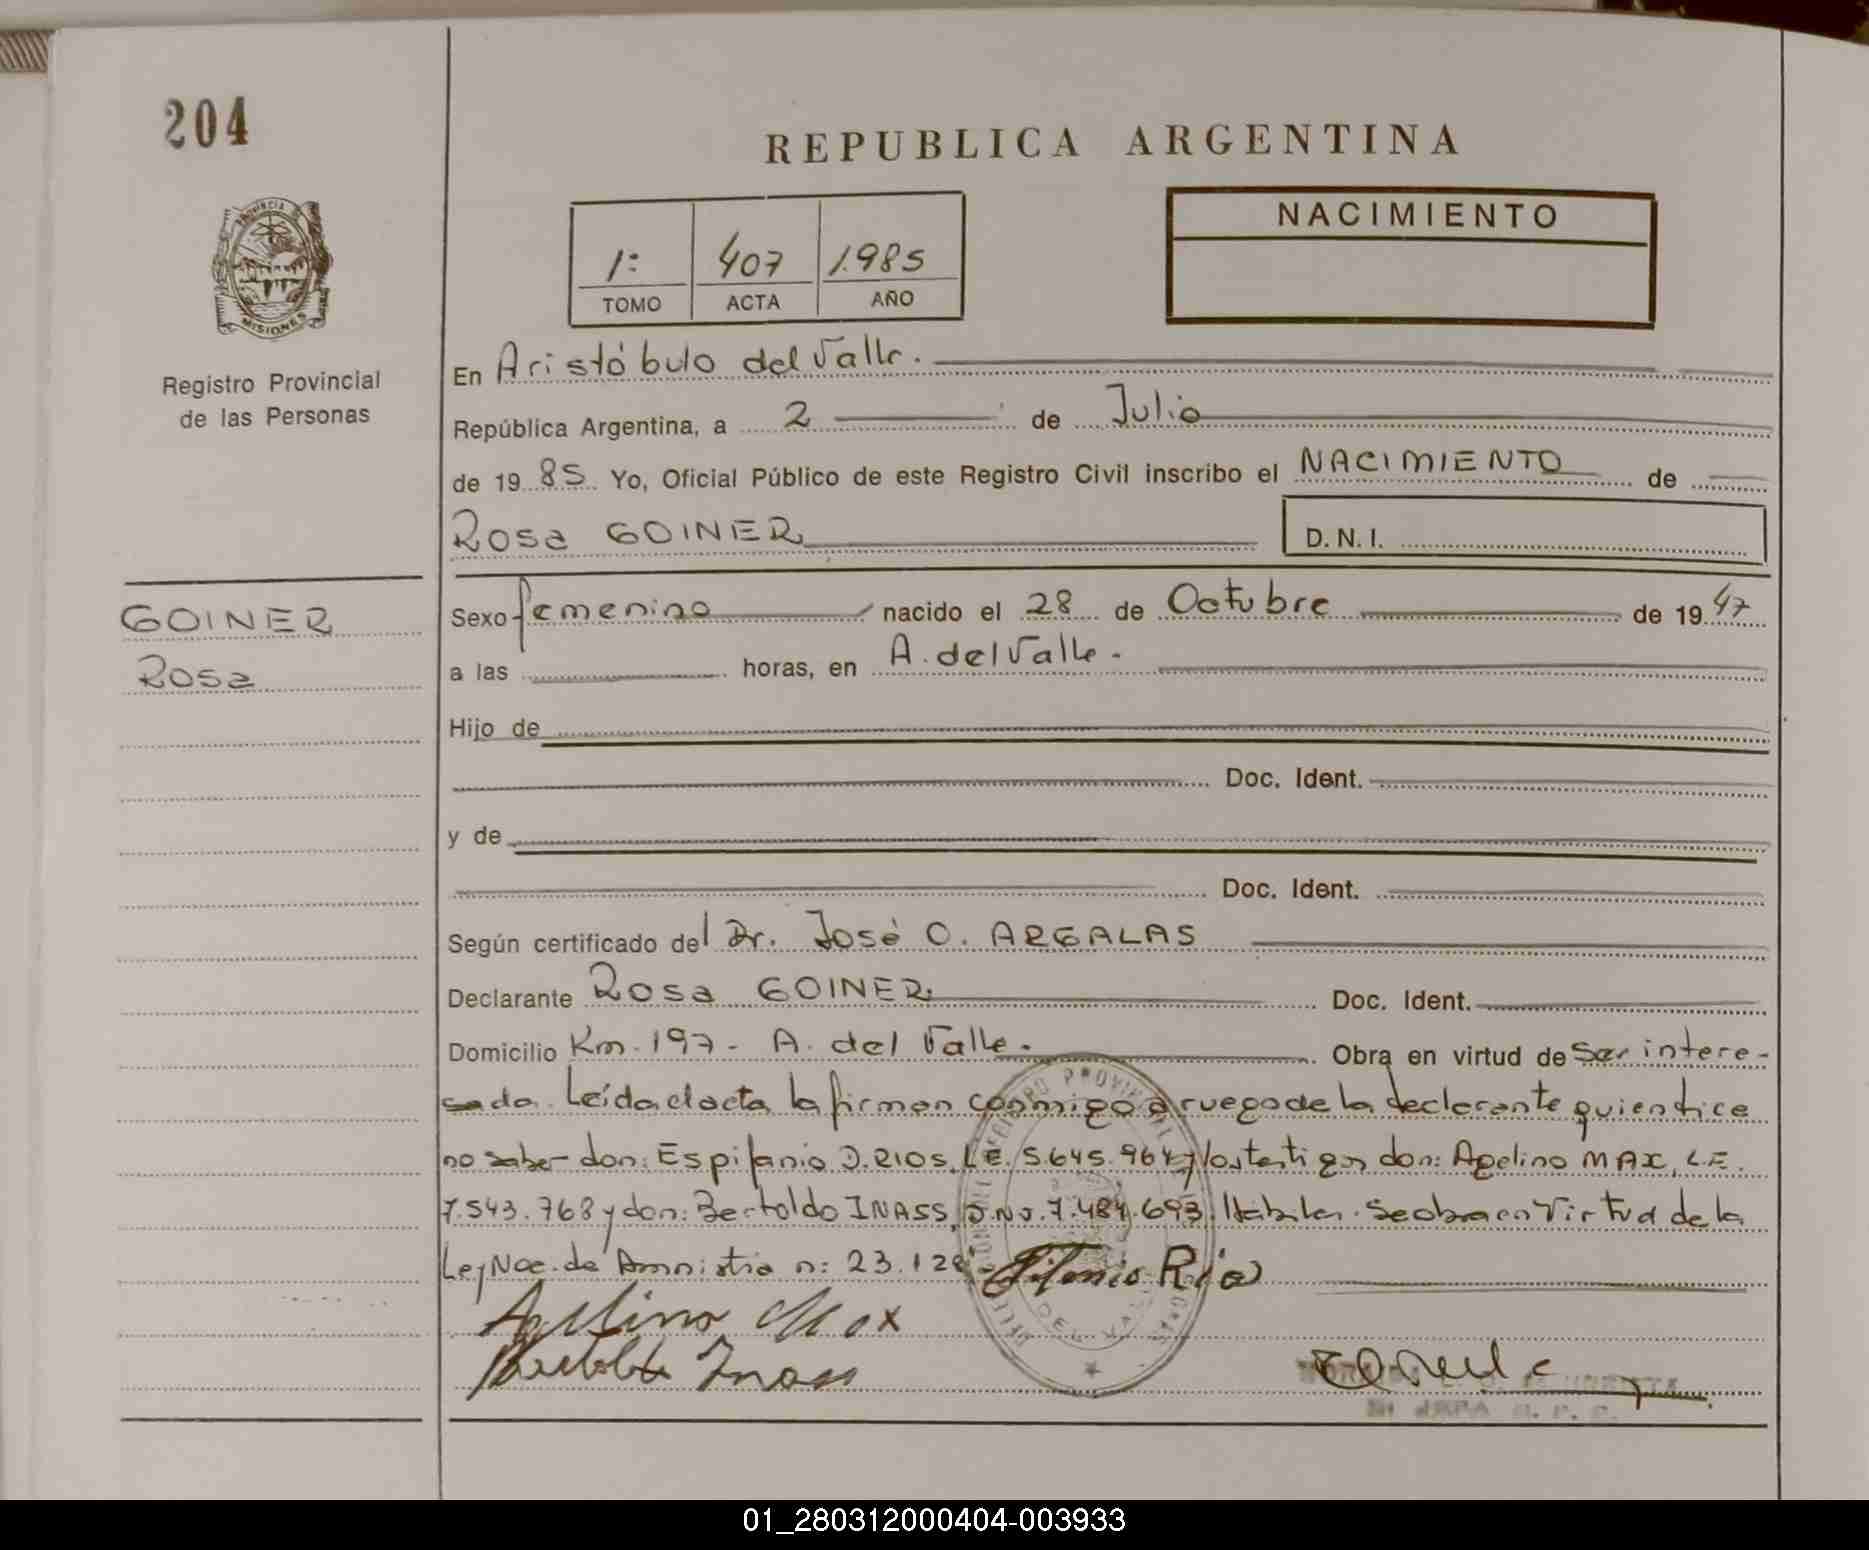 204
REPUBLICA ARGENTINA
PROVINCIA DE
MISIONES
Registro Provincial
de las Personas
1: 407 1.985
TOMO ACTA AÑO
NACIMIENTO
En Aristóbulo del Valle.
República Argentina, a 2 de Julio
de 19 85 Yo, Oficial Público de este Registro Civil inscribo el NACIMIENTO de
Rosa GOINER D.N.I.
GOINER
Rosa
Sexo femenino nacido el 28 de Octubre de 19 47
a las horas, en A. del Valle.
Hijo de
Doc. Ident.
y de
Doc. Ident.
Según certificado del Dr. José O. ARGALAS
Declarante Rosa GOINER Doc. Ident.
Domicilio Km. 197- A. del Valle. Obra en virtud de ser intere-
sada. Leída el acta la firman conmigo a ruego de la declarante quien dice
no saber don: Espifanio D. RIOS, L.E. 5.645.964 y los testigos don: Agelino MAX, L.E.
7.543.768 y don: Bertoldo INASS, D.N.I. 7.484.693. Hábiles. Se obra en Virtud de la
Ley Nac. de Amnistia n: 23.128
Rios
Agelino Max
Bertoldo Inass
DEL VALLE
01_280312000404-003933